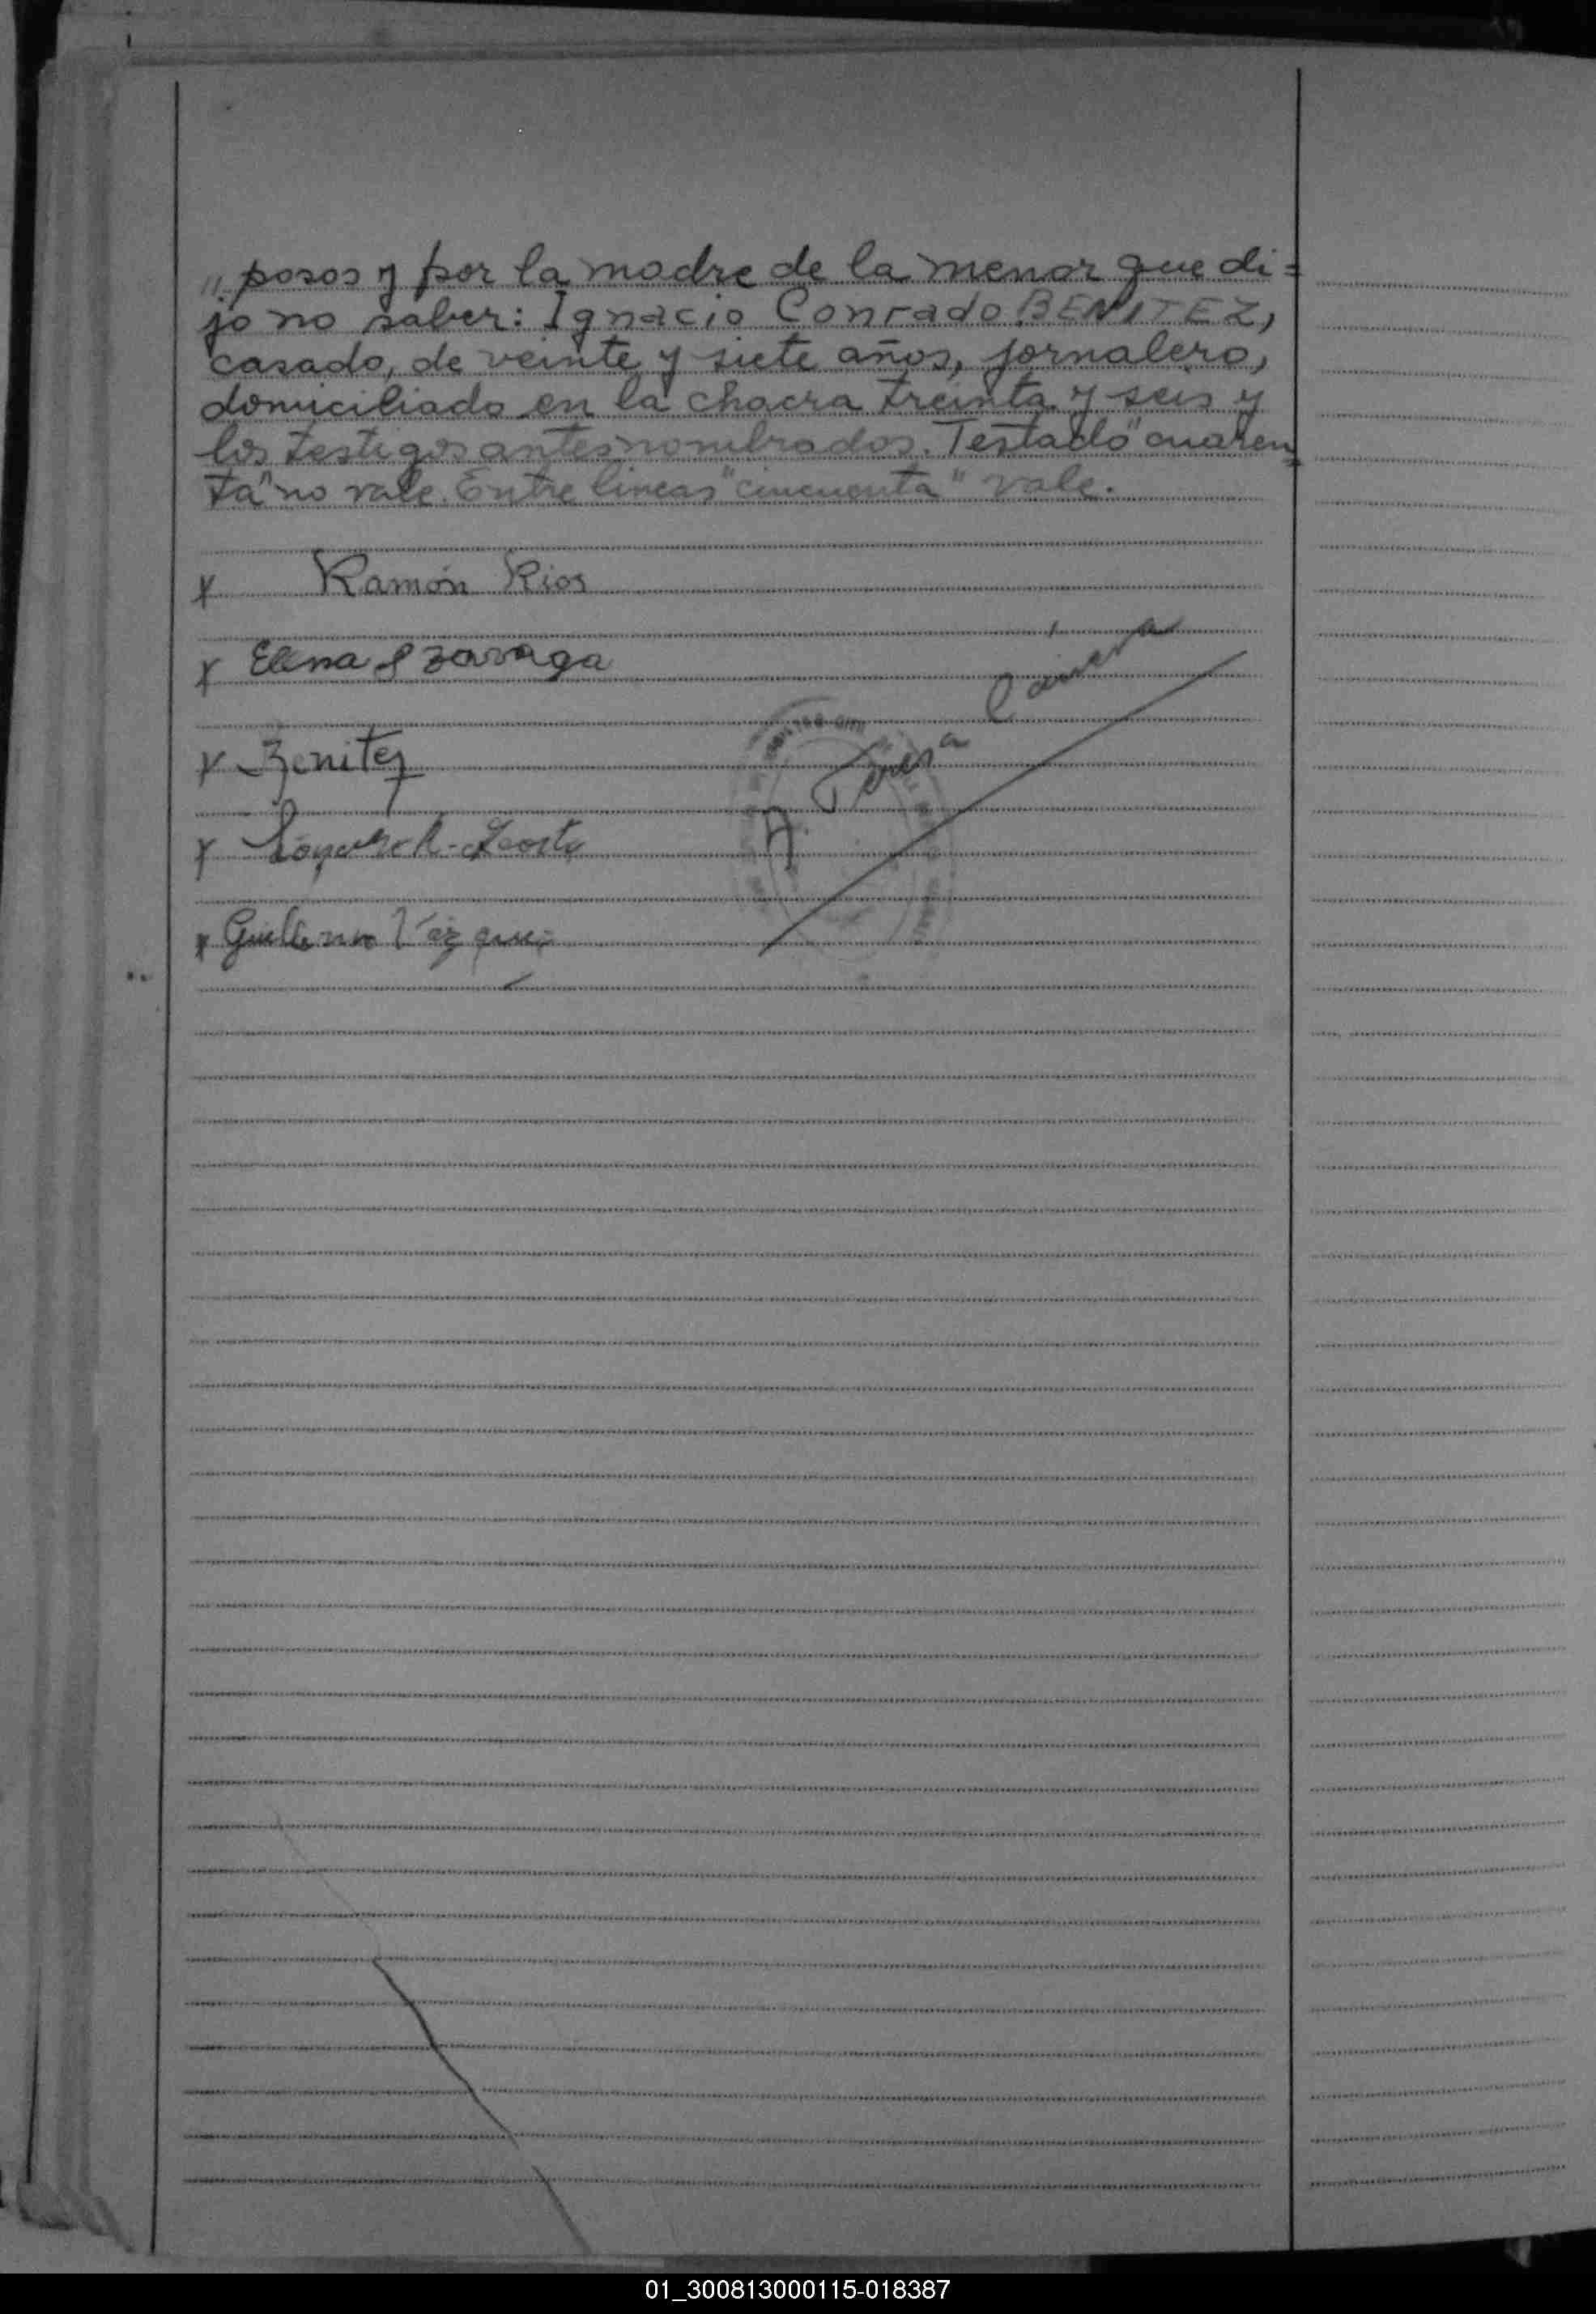 " posos y por la madre de la menor que di=
jo no saber: Ignacio Conrado BENITEZ,
casado, de veinte y siete años, jornalero,
domiciliado en la chacra treinta y seis y
los testigos antes nombrados. Testado "cuaren=
ta" no vale. Entre lineas "cincuenta" vale.
x Ramón Rios
x Elena
x Benitez
x Acosta
x Guillermo Vázquez
01_300813000115-018387